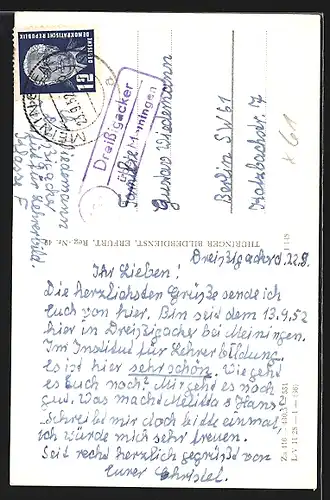 DEUTSCHE
DEMOKRATISCHE REPUBLIK
12
MEININGEN
23.9.52
Dreißigacker
über Meiningen
Familie
Gustav Wiedemann
Berlin SW 61
Katzbachstr. 17
× 61
Wiedemann
Dreißigacker
Institut für Lehrerbild.
Klasse F
THÜRINGER BILDERDIENST, ERFURT, Reg.-Nr. 48
Dreißigacker d. 22.9.
Ihr Lieben!
Die herzlichsten Grüße sende ich
Euch von hier. Bin seit dem 13.9.52
hier in Dreißigacker bei Meiningen.
Im Institut für Lehrerbildung.
Es ist hier sehr schön. Wie geht
es Euch noch? Mir geht es noch
gut. Was macht Melitta & Hans
Schreibt mir doch bitte einmal,
ich würde mich sehr freuen.
Seit recht herzlich gegrüßt von
Eurer Christel.